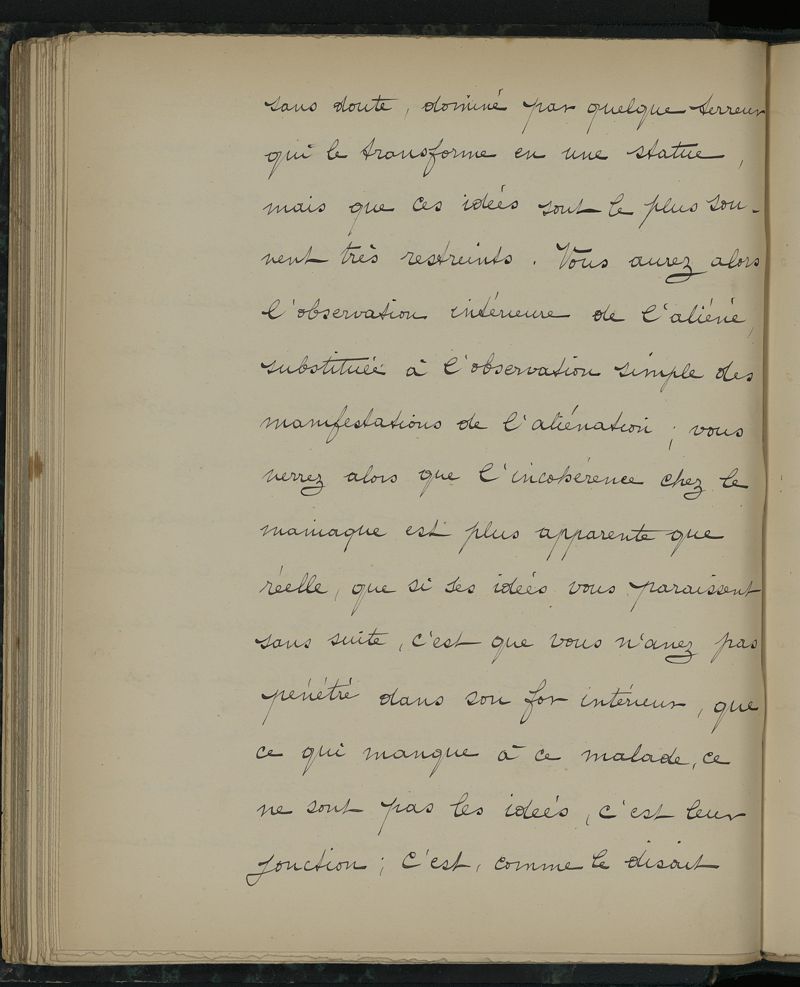 sans doute, dominé par quelque terreur
qui le transforme en une statue,
mais que ces idées sont le plus sou-
vent très restreints. Vous aurez alors
l'observation intérieure de l'aliéné,
substituée à l'observation simple des
manifestations de l'aliénation; vous
verrez alors que l'incohérence chez le
maniaque est plus apparente que
réelle, que si ses idées vous paraissent
sans suite, c'est que vous n'avez pas
pénétré dans son for intérieur, que
ce qui manque à ce malade, ce
ne sont pas les idées, c'est leur
jonction; c'est, comme le disait